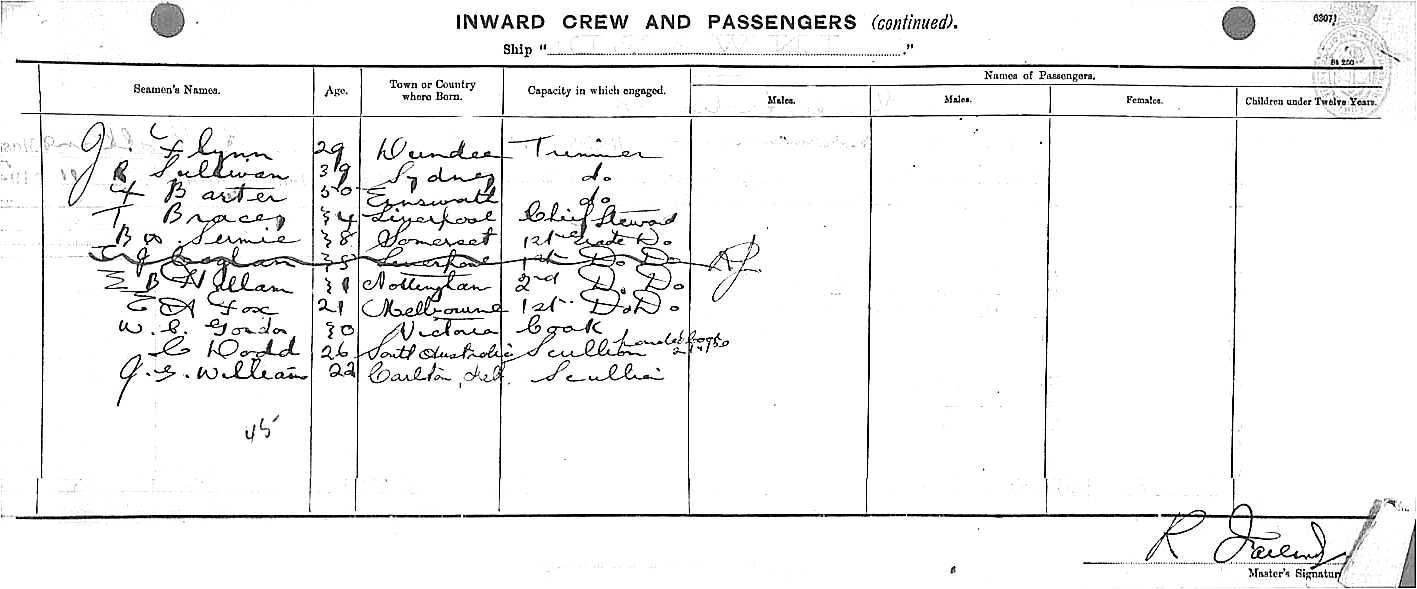 INWARD CREW AND PASSENGERS (continued).
6307
Ship " "
84 250
Seamen's Names. Age. Town or Country where Born. Capacity in which engaged. Names of Passengers.
Males. Males. Females. Children under Twelve Years.
J. Flynn 29 Dundee Trimmer
R Sullivan 39 Sydney do
Baxter 50 Emswoth do
T Bracey 34 Liverpool Chief Steward
38 Somerset 1st Grade Do
35 Liverpool 1st Do. Do
E B 31 Nottingham 2nd D. Do
E A Fox 21 Melbourne 1st D. Do
W. C. Gordon 30 Victoria Cook
C Dodd 26 South Australia Scullion
J. S. Williams 22 Carlton, Scullion
45
R
Master's Signatur